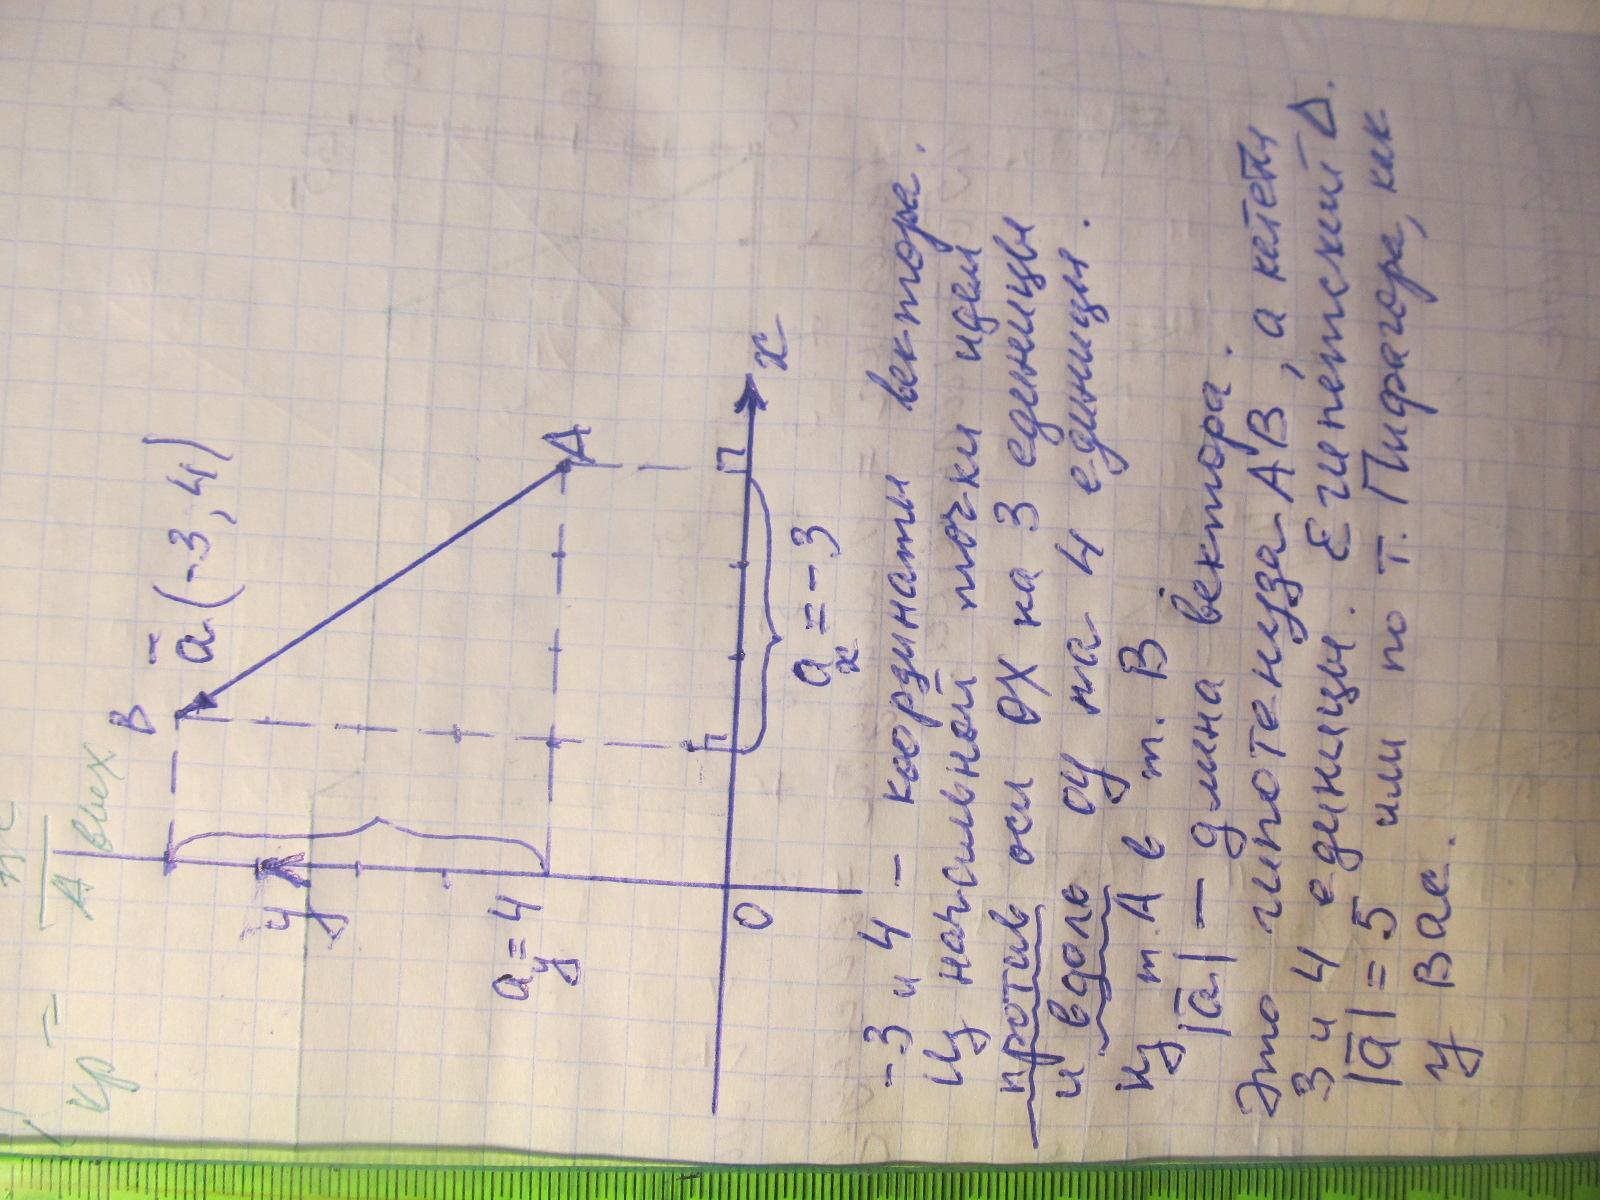 Vср =
A вых
B
ā (-3, 4)
y
A
a_y = 4
0
x
a_x = -3
-3 и 4 - координаты вектора.
Из начальной точки идем
против оси OX на 3 еденицы
и вдоль oy на 4 единицы.
Из т. А в т. В
|ā| - длина вектора.
Это гипотенуза AB, а катеты
3 и 4 единицы. Египетский Δ.
|ā| = 5 или по т. Пифагора, как
у Вас.